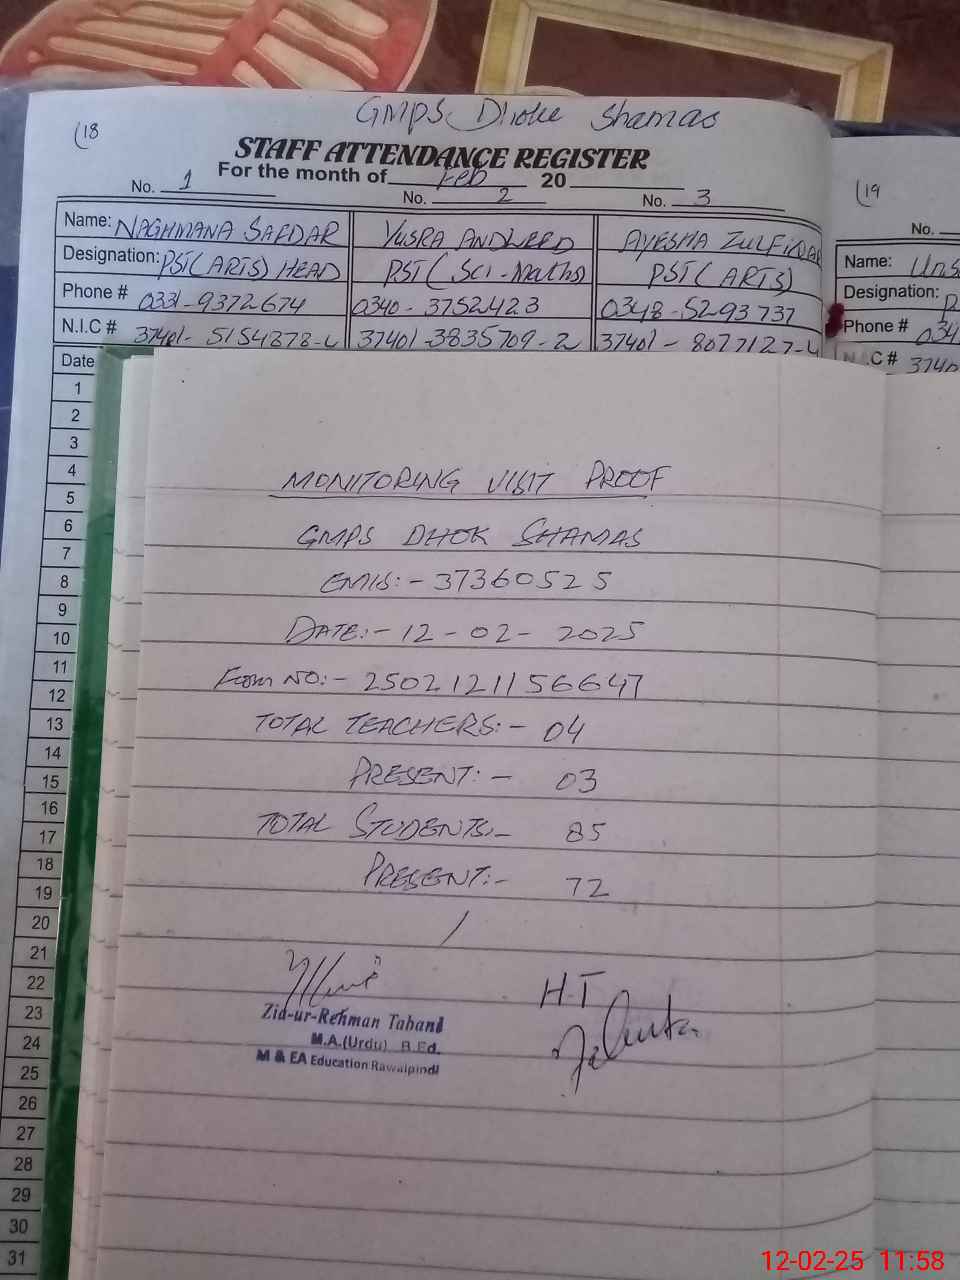 GMPS Dhoke Shamas
(18
STAFF ATTENDANCE REGISTER
For the month of Feb 20
No. 1 No. 2 No. 3
Name: NAGHMANA SAFDAR YUSRA ANDLEED AYESHA ZULFIQAR
Designation: PST(ARTS) HEAD PST (Sci-Maths) PST (ARTS)
Phone # 0331-9372674 0340-3752423 0348-5293737
N.I.C # 37401-5154878-4 37401-3835709-2 37401-8077127-4
Date
1
2
3
4
5
6
7
8
9
10
11
12
13
14
15
16
17
18
19
20
21
22
23
24
25
26
27
28
29
30
31
(19
No.
Name:
Designation:
Phone # 034
N.I.C # 3740
MONITORING VISIT PROOF
GMPS DHOK SHAMAS
EMIS:- 37360525
DATE:- 12-02-2025
Form NO:- 2502121156647
TOTAL TEACHERS:- 04
PRESENT:- 03
TOTAL STUDENTS:- 85
PRESENT:- 72
Zid-ur-Rehman Tabani
M.A.(Urdu) B.Ed.
M & EA Education Rawalpindi
H.T
12-02-25 11:58